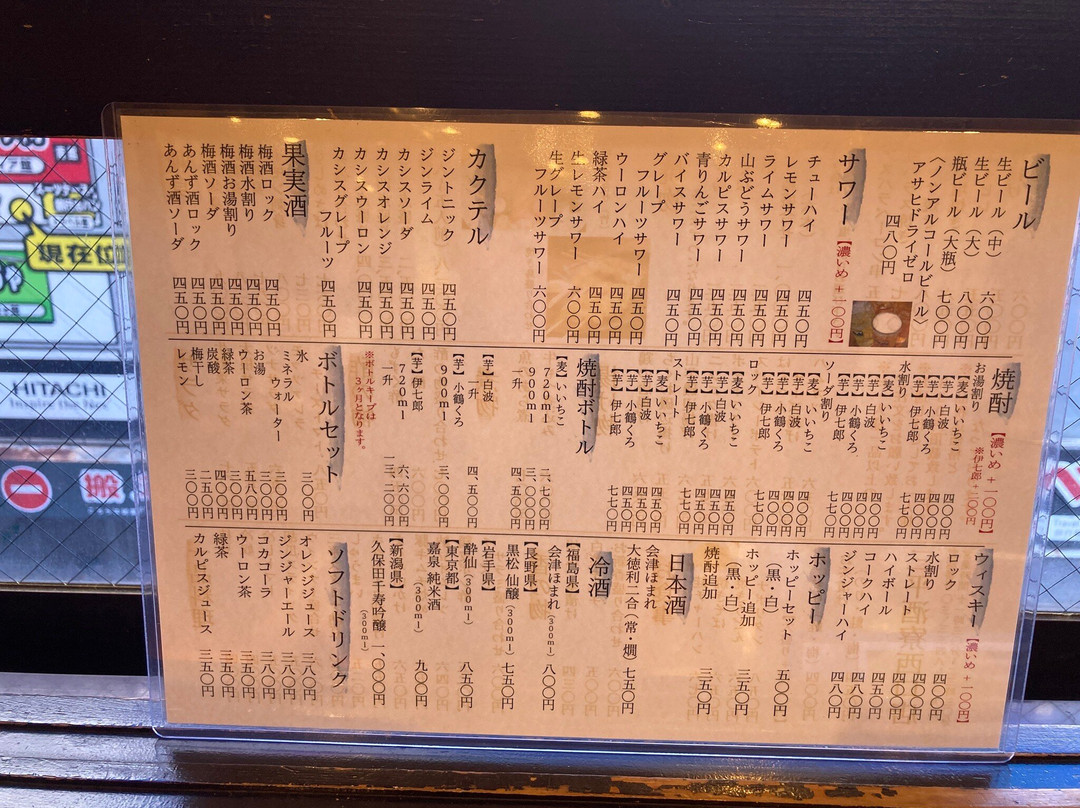 ビール
生ビール（中） 六〇〇円
生ビール（大） 八〇〇円
瓶ビール（大瓶） 七〇〇円
〈ノンアルコールビール〉
アサヒドライゼロ
四八〇円
サワー
【濃いめ＋一〇〇円】
チューハイ 四五〇円
レモンサワー 四五〇円
ライムサワー 四五〇円
山ぶどうサワー 四五〇円
カルピスサワー 四五〇円
青りんごサワー 四五〇円
バイスサワー 四五〇円
グレープ
フルーツサワー 四五〇円
ウーロンハイ 四五〇円
緑茶ハイ 四五〇円
生レモンサワー 六〇〇円
生グレープ
フルーツサワー 六〇〇円
カクテル
ジントニック 四五〇円
ジンライム 四五〇円
カシスソーダ 四五〇円
カシスオレンジ 四五〇円
カシスウーロン 四五〇円
カシスグレープ
フルーツ 四五〇円
果実酒
梅酒ロック 四五〇円
梅酒水割り 四五〇円
梅酒お湯割り 四五〇円
梅酒ソーダ 四五〇円
あんず酒ロック 四五〇円
あんず酒ソーダ 四五〇円
焼酎
【濃いめ＋一〇〇円】
※伊七郎＋二〇〇円
お湯割り
【麦】いいちこ 四〇〇円
【芋】白波 四〇〇円
【芋】小鶴くろ 四〇〇円
【芋】伊七郎 七七〇円
水割り
【麦】いいちこ 四〇〇円
【芋】白波 四〇〇円
【芋】小鶴くろ 四〇〇円
【芋】伊七郎 七七〇円
ソーダ割り
【麦】いいちこ 四〇〇円
【芋】白波 四〇〇円
【芋】小鶴くろ 四〇〇円
【芋】伊七郎 七七〇円
ロック
【麦】いいちこ 四五〇円
【芋】白波 四五〇円
【芋】小鶴くろ 四五〇円
【芋】伊七郎 七七〇円
ストレート
【麦】いいちこ 四五〇円
【芋】白波 四五〇円
【芋】小鶴くろ 四五〇円
【芋】伊七郎 七七〇円
焼酎ボトル
【麦】いいちこ
720ml 二、七〇〇円
900ml 三、〇〇〇円
一升 四、五〇〇円
【芋】白波
一升 四、五〇〇円
【芋】小鶴くろ
900ml 三、〇〇〇円
【芋】伊七郎
720ml 六、六〇〇円
一升 一三、二〇〇円
※ボトルキープは
3ヶ月となります。
ボトルセット
氷 三〇〇円
ミネラル
ウォーター 三〇〇円
お湯 三〇〇円
ウーロン茶 五八〇円
緑茶 三〇〇円
炭酸 四〇〇円
梅干し 二五〇円
レモン 三〇〇円
ウィスキー
【濃いめ＋一〇〇円】
ロック 四〇〇円
水割り 四〇〇円
ストレート 四〇〇円
ハイボール 四五〇円
コークハイ 四八〇円
ジンジャーハイ 四八〇円
ホッピー
ホッピーセット
（黒・白） 五〇〇円
ホッピー追加
（黒・白） 三五〇円
焼酎追加 三五〇円
日本酒
会津ほまれ
大徳利二合（常・燗） 七五〇円
冷酒
【福島県】
会津ほまれ（300ml） 八〇〇円
【長野県】
黒松仙醸（300ml） 七五〇円
【岩手県】
酔仙（300ml） 八五〇円
【東京都】
嘉泉 純米酒（300ml） 九〇〇円
【新潟県】
久保田千寿吟醸（300ml） 一、〇〇〇円
ソフトドリンク
オレンジジュース 三八〇円
ジンジャーエール 三八〇円
コカコーラ 三八〇円
ウーロン茶 三五〇円
緑茶 三五〇円
カルピスジュース 三五〇円
現在位
HITACHI
Inspire the Next
搬